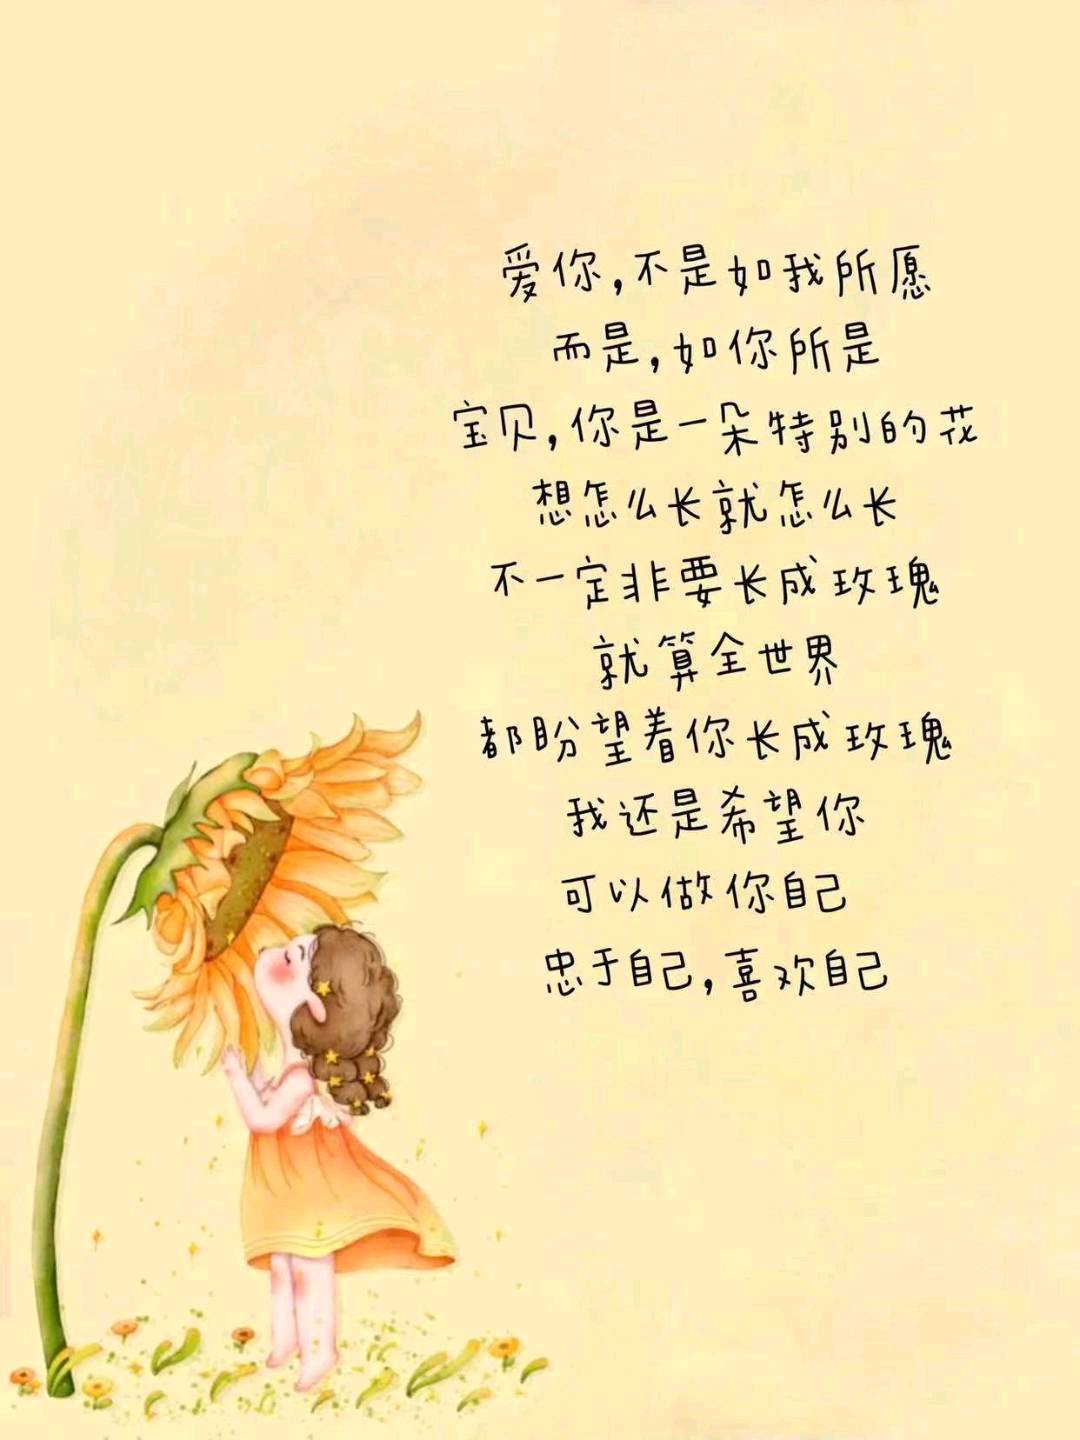 爱你,不是如我所愿
而是,如你所是
宝贝,你是一朵特别的花
想怎么长就怎么长
不一定非要长成玫瑰
就算全世界
都盼望着你长成玫瑰
我还是希望你
可以做你自己
忠于自己,喜欢自己